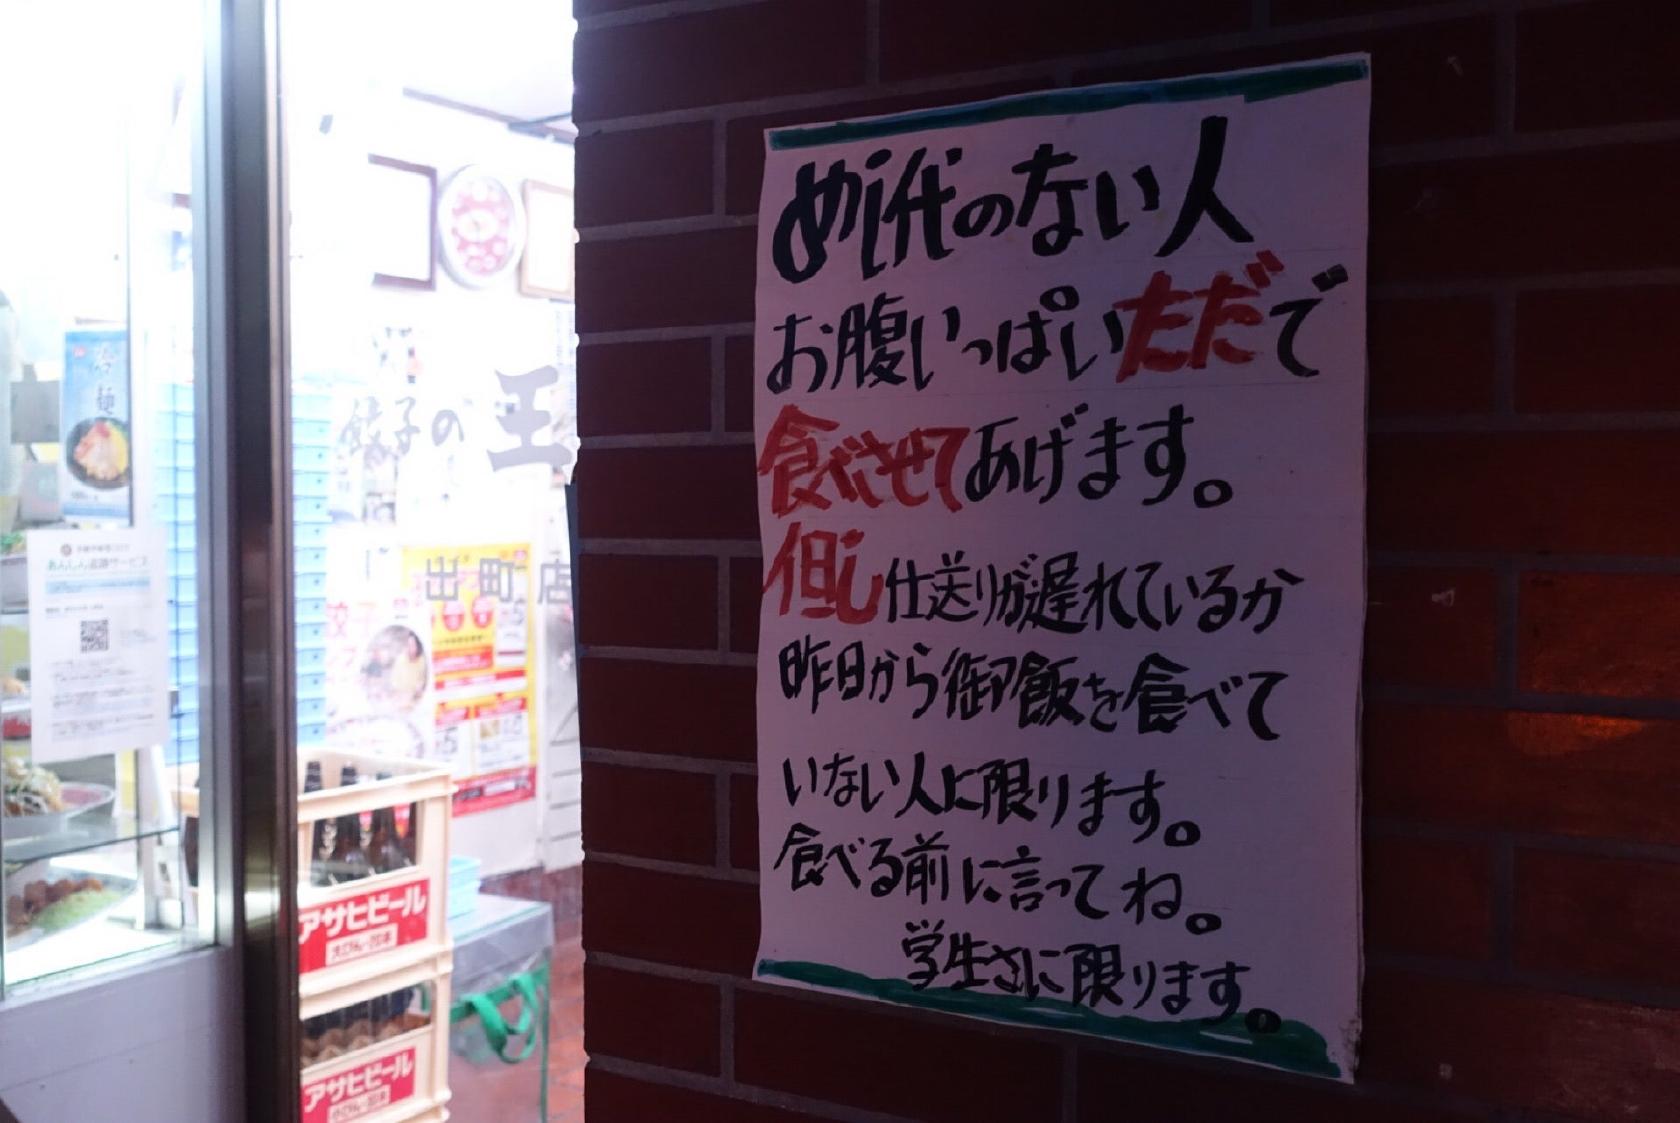 めし代のない人
お腹いっぱいただで
食べさせてあげます。
但し仕送りが遅れているか
昨日から御飯を食べて
いない人に限ります。
食べる前に言ってね。
学生さんに限ります。
餃子の王
出町店
冷麺
あんしん追跡サービス
アサヒビール
大びん・20本
アサヒビール